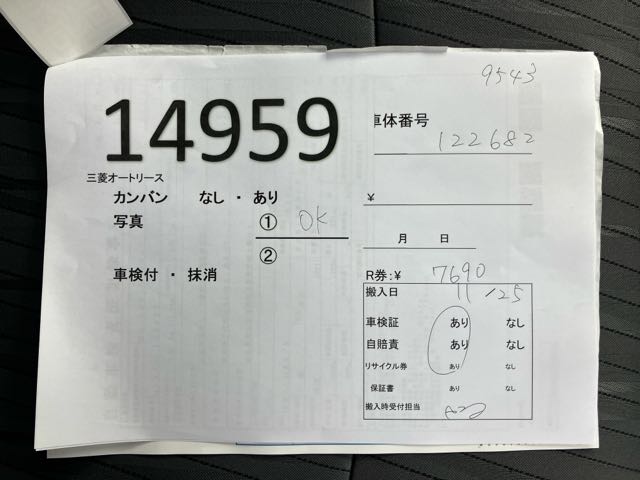 9543
14959
車体番号
122682
三菱オートリース
カンバン なし ・ あり
¥
写真 ① OK
②
月 日
車検付 ・ 抹消
R券:¥ 7690
搬入日 11/25
車検証 あり なし
自賠責 あり なし
リサイクル券 あり なし
保証書 あり なし
搬入時受付担当